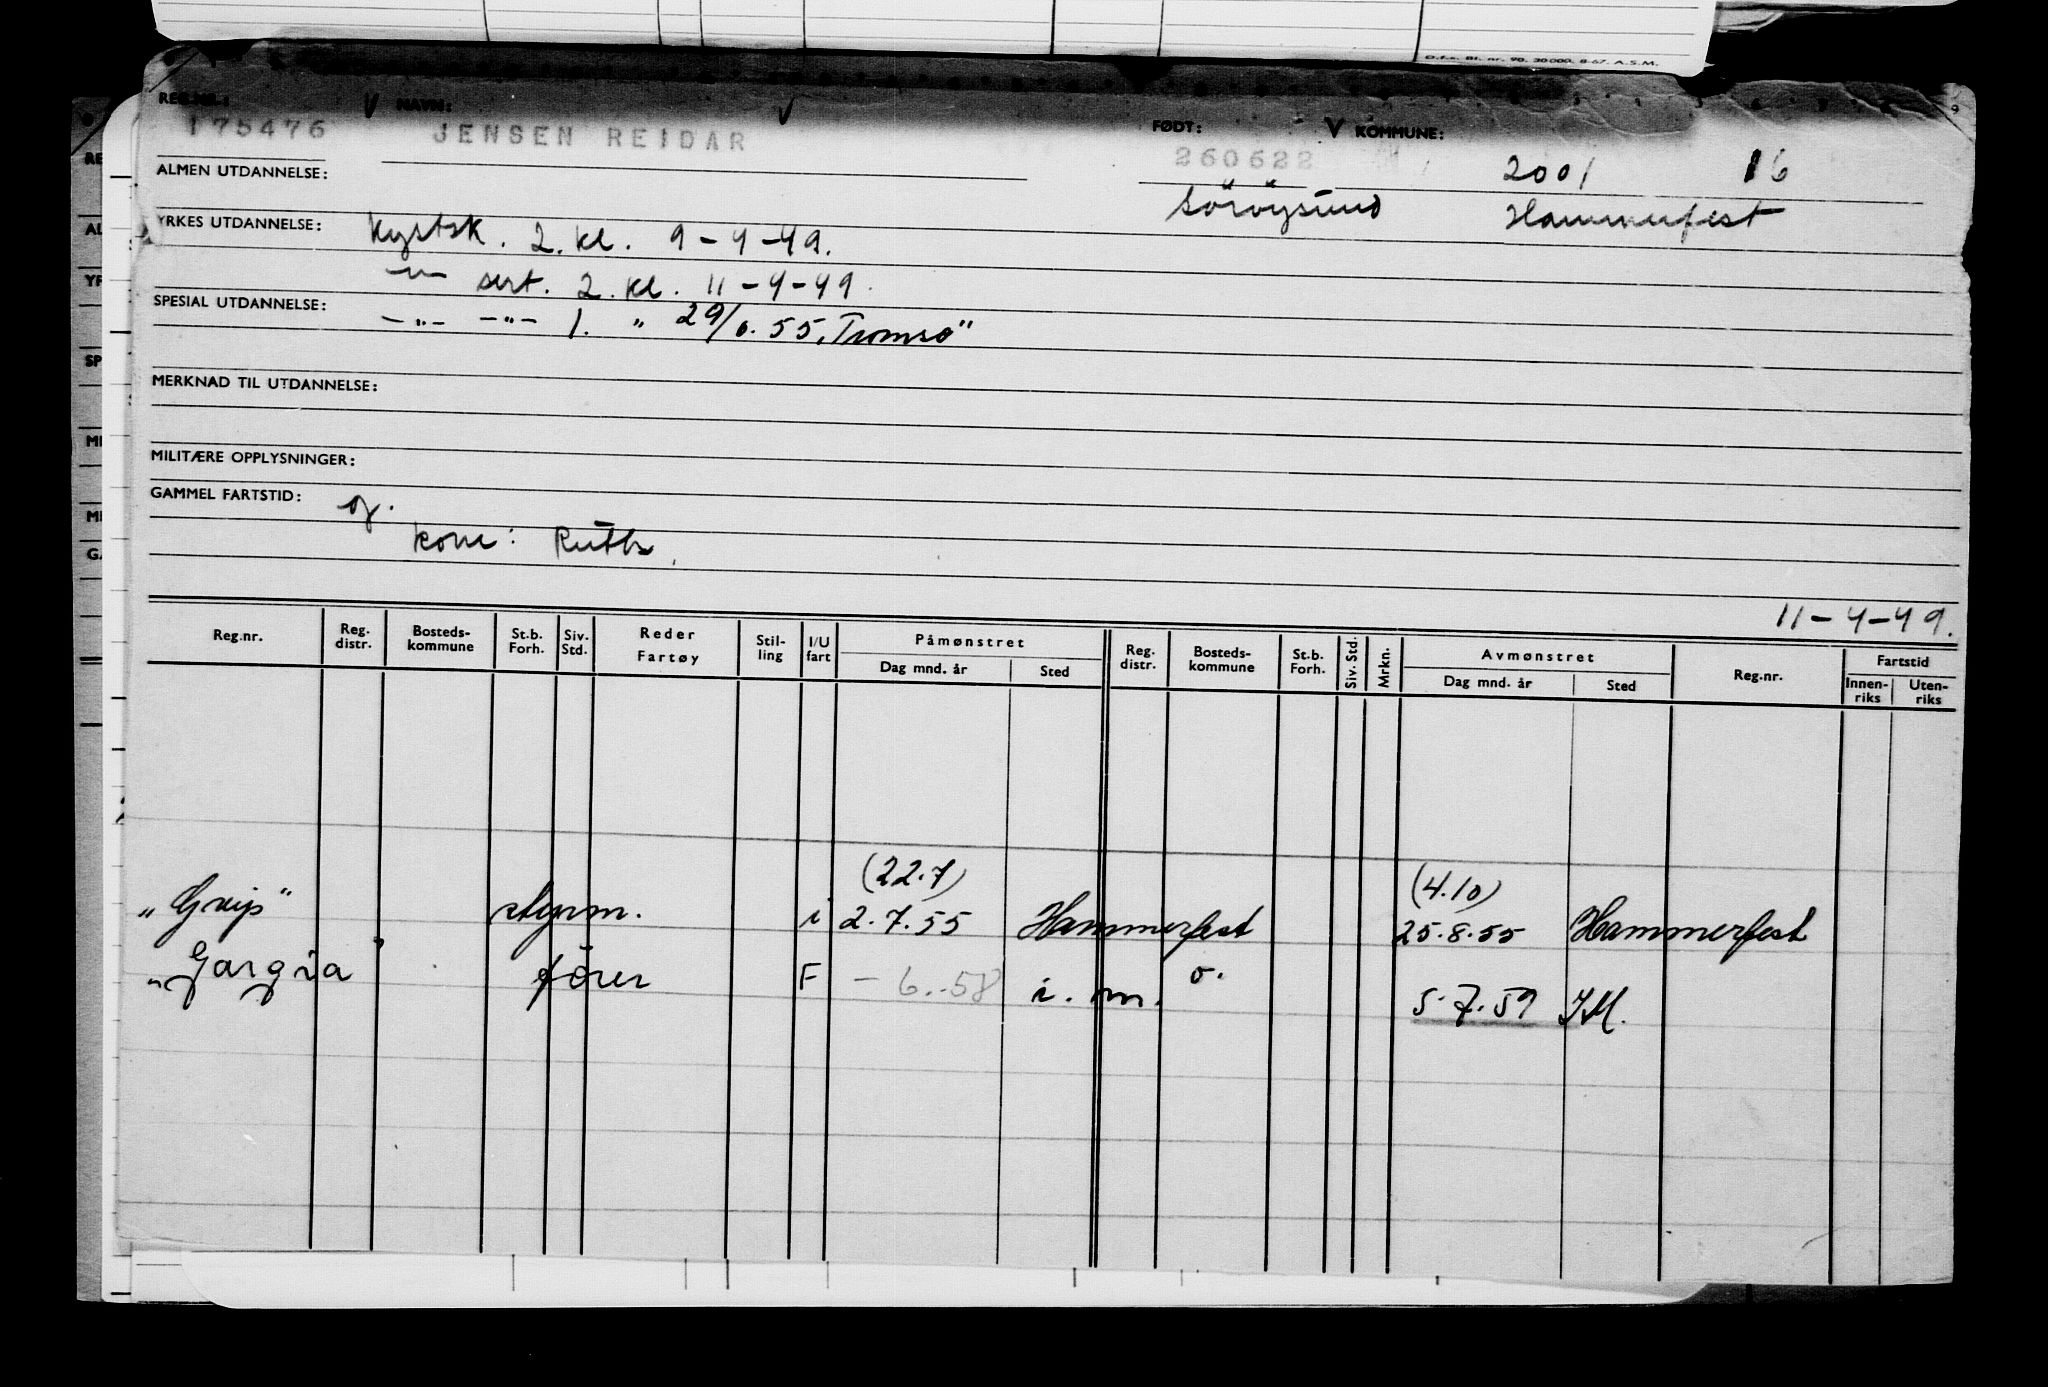 O.f.s. Bl. nr. 90. 30000. 8-67. A.S.M.
REG.NR.: V NAVN: V FØDT: V KOMMUNE:
175476 JENSEN REIDAR 260622 2001 16
ALMEN UTDANNELSE:
Sörøysund Hammerfest
YRKES UTDANNELSE: Kystsk. 2. kl. 9-4-49.
-"- sert. 2. kl. 11-4-49.
SPESIAL UTDANNELSE: -"- -"- 1. " 29/6.55. Tromsø"
MERKNAD TIL UTDANNELSE:
MILITÆRE OPPLYSNINGER:
GAMMEL FARTSTID:
kone: Ruth
11-4-49.
Reg.nr. Reg. distr. Bosteds- kommune St.b. Forh. Siv. Std. Reder Fartøy Stil- ling I/U fart Påmønstret Dag mnd. år Sted Reg. distr. Bosteds- kommune St.b. Forh. Siv. Std. Mrkn. Avmønstret Dag mnd. år Sted Reg.nr. Fartstid Innen- riks Uten- riks
(22.7) (4.10)
"Grip" styrm. i 2.7.55 Hammerfest 25.8.55 Hammerfest
"Gargia" förer F - 6.-58 i. m. o. 5.7.59 I.M.